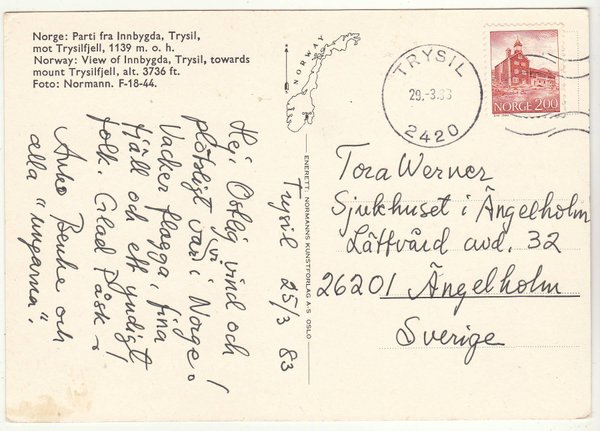 Norge: Parti fra Innbygda, Trysil,
mot Trysilfjell, 1139 m. o. h.
Norway: View of Innbygda, Trysil, towards
mount Trysilfjell, alt. 3736 ft.
Foto: Normann. F-18-44.
NORWAY
TRYSIL
29.-3.83
2420
NORGE 200
Trysil 25/3 83
Hej! Ostlig vind och
plötsligt var vi i Norge!
Vacker flagga, fina
fjäll och ett yndigt
folk. Glad Påsk
och
alla "ungarna".
ENERETT: NORMANNS KUNSTFORLAG A/S OSLO
Tora Werner
Sjukhuset i Ängelholm
Låttvård avd. 32
26201 Ängelholm
Sverige